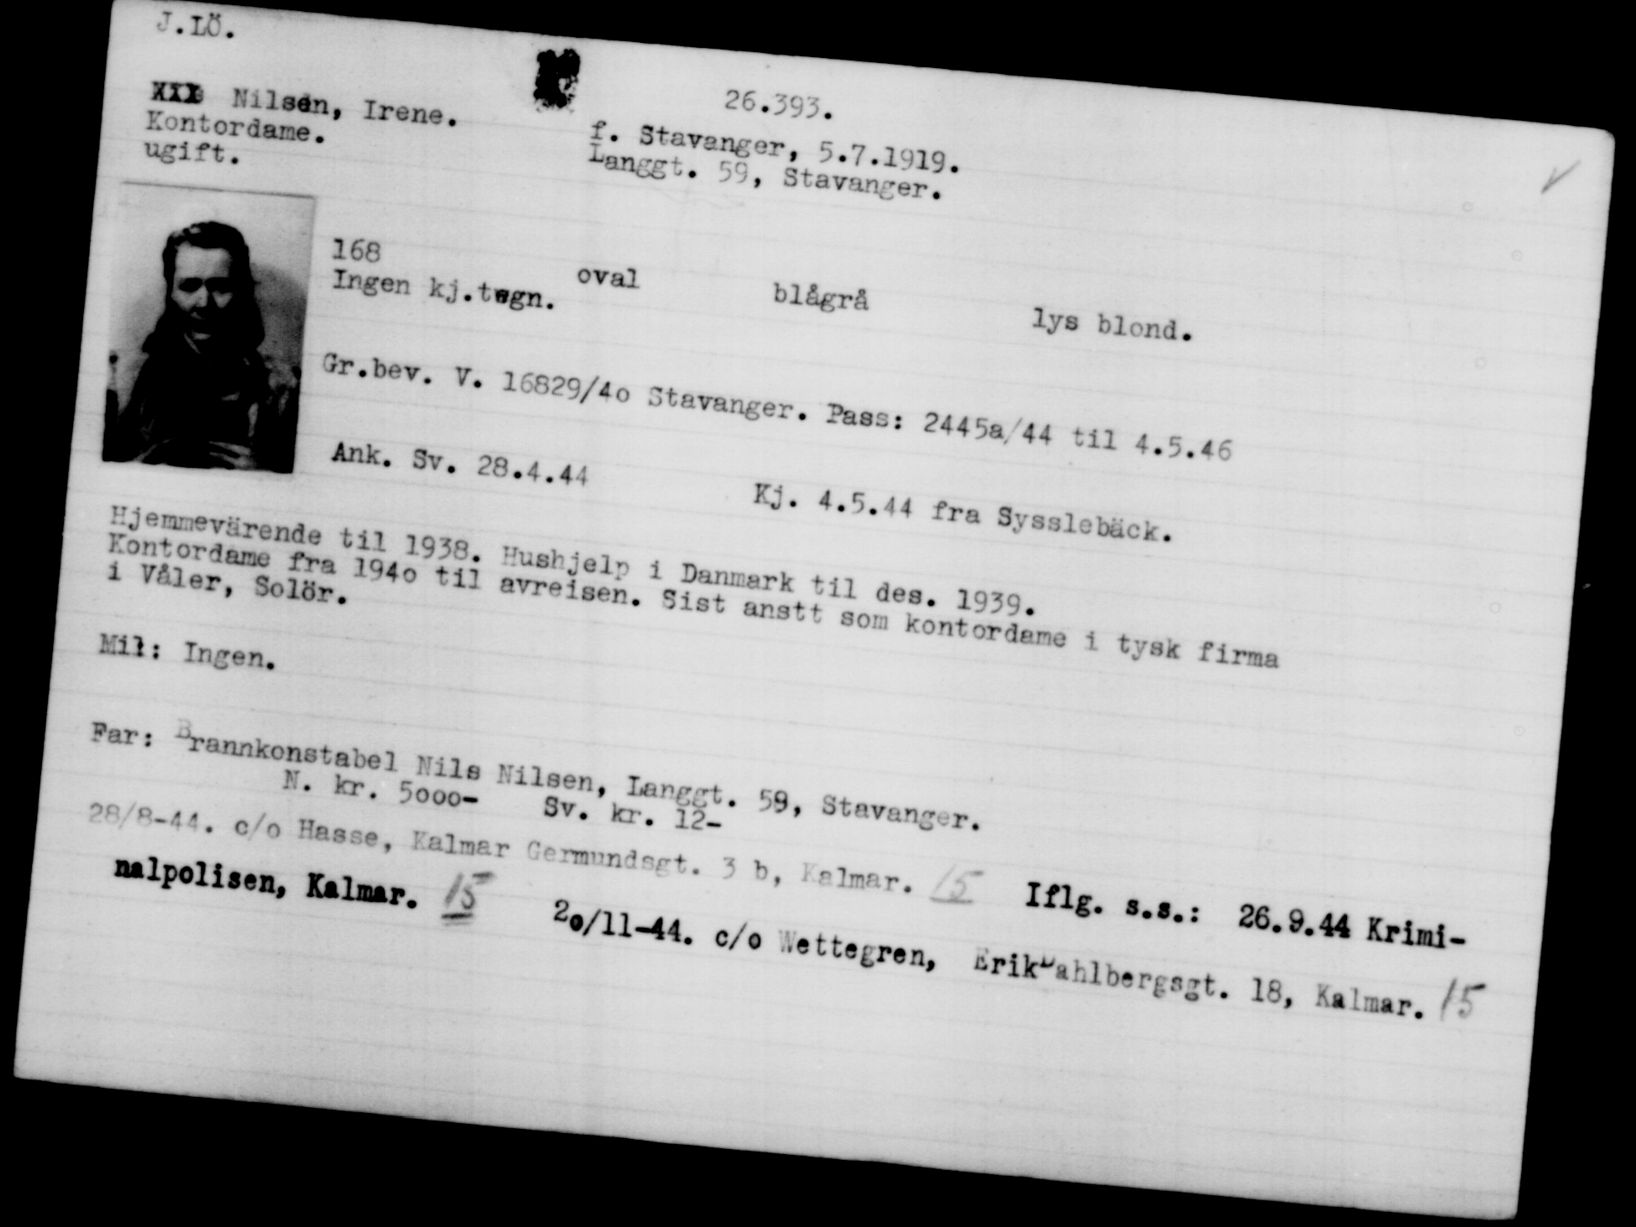 J.LÖ.
26.393.
Nilsen, Irene.
f. Stavanger, 5.7.1919.
Kontordame.
Langgt. 59, Stavanger.
ugift.
168
oval
blågrå
lys blond.
Ingen kj.tegn.
Gr.bev. V. 16829/4o Stavanger. Pass: 2445a/44 til 4.5.46
Ank. Sv. 28.4.44
Kj. 4.5.44 fra Sysslebäck.
Hjemmevärende til 1938. Hushjelp i Danmark til des. 1939.
Kontordame fra 194o til avreisen. Sist anstt som kontordame i tysk firma
i Våler, Solör.
Mil: Ingen.
Far: Brannkonstabel Nils Nilsen, Langgt. 59, Stavanger.
N. kr. 5ooo- Sv. kr. 12-
28/8-44. c/o Hasse, Kalmar Germundsgt. 3 b, Kalmar. 15 Iflg. s.s.: 26.9.44 Krimi-
nalpolisen, Kalmar. 15 2o/11-44. c/o Wettegren, Erik Dahlbergsgt. 18, Kalmar. 15